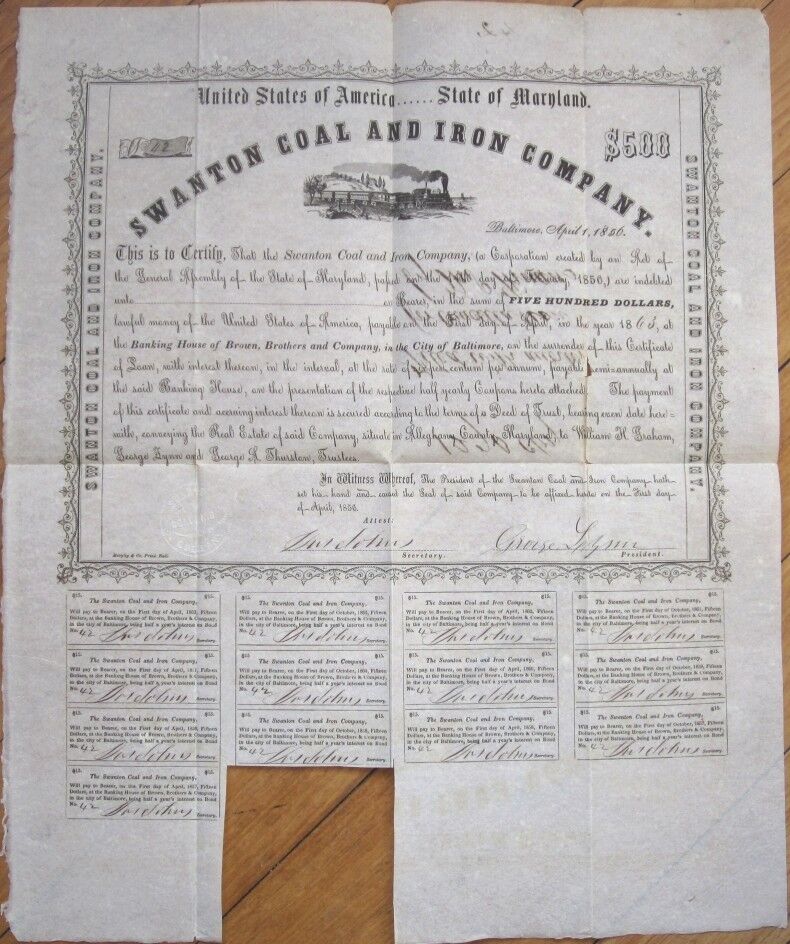 United States of America...... State of Maryland.
42
$500
SWANTON COAL AND IRON COMPANY.
SWANTON COAL AND IRON COMPANY.
SWANTON COAL AND IRON COMPANY.
Baltimore, April 1, 1856.
This is to Certify, That the Swanton Coal and Iron Company, (a Corporation created by an Act of
the General Assembly of the State of Maryland, passed on the day of 1850,) are indebted
unto or Bearer, in the sum of FIVE HUNDRED DOLLARS,
lawful money of the United States of America, payable on the First day of April, in the year 1863, at
the Banking House of Brown, Brothers and Company, in the City of Baltimore, on the surrender of this Certificate
of Loan, with interest thereon, in the interval, at the rate of six per centum per annum, payable semi-annually at
the said Banking House, on the presentation of the respective half yearly Coupons hereto attached. The payment
of this certificate and accruing interest thereon is secured according to the terms of a Deed of Trust, bearing even date here=
with, conveying the Real Estate of said Company, situate in Alleghany County, Maryland, to William H. Graham,
George Lynn and George A. Thurston, Trustees.
In Witness Whereof, The President of the Swanton Coal and Iron Company hath
set his hand and caused the Seal of said Company to be affixed hereto on the First day
of April, 1856.
Attest:
Jas Johns Secretary.
George Lynn President.
Murphy & Co. Print. Balt.
$15. $15.
The Swanton Coal and Iron Company,
Will pay to Bearer, on the First day of April, 1863, Fifteen
Dollars, at the Banking House of Brown, Brothers & Company,
in the city of Baltimore, being half a year's interest on Bond
No. 42 Jas Johns Secretary.
$15. $15.
The Swanton Coal and Iron Company,
Will pay to Bearer, on the First day of October, Fifteen
Dollars, at the Banking House of Brown, Brothers & Company,
in the city of Baltimore, being half a year's interest on Bond
No. 42 Jas Johns Secretary.
$15. $15.
The Swanton Coal and Iron Company,
Will pay to Bearer, on the First day of April, Fifteen
Dollars, at the Banking House of Brown, Brothers & Company,
in the city of Baltimore, being half a year's interest on Bond
No. 42 Jas Johns Secretary.
$15. $15.
The Swanton Coal and Iron Company,
Will pay to Bearer, on the First day of October, 1861, Fifteen
Dollars, at the Banking House of Brown, Brothers & Company,
in the city of Baltimore, being half a year's interest on Bond
No. 42 Jas Johns Secretary.
$15. $15.
The Swanton Coal and Iron Company,
Will pay to Bearer, on the First day of April, Fifteen
Dollars, at the Banking House of Brown, Brothers & Company,
in the city of Baltimore, being half a year's interest on Bond
No. 42 Jas Johns Secretary.
$15. $15.
The Swanton Coal and Iron Company,
Will pay to Bearer, on the First day of October, 1860, Fifteen
Dollars, at the Banking House of Brown, Brothers & Company,
in the city of Baltimore, being half a year's interest on Bond
No. 42 Jas Johns Secretary.
$15. $15.
The Swanton Coal and Iron Company,
Will pay to Bearer, on the First day of April, 1860, Fifteen
Dollars, at the Banking House of Brown, Brothers & Company,
in the city of Baltimore, being half a year's interest on Bond
No. 42 Jas Johns Secretary.
$15. $15.
The Swanton Coal and Iron Company,
Will pay to Bearer, on the First day of October, 1859, Fifteen
Dollars, at the Banking House of Brown, Brothers & Company,
in the city of Baltimore, being half a year's interest on Bond
No. 42 Jas Johns Secretary.
$15. $15.
The Swanton Coal and Iron Company,
Will pay to Bearer, on the First day of April, 1859, Fifteen
Dollars, at the Banking House of Brown, Brothers & Company,
in the city of Baltimore, being half a year's interest on Bond
No. 42 Jas Johns Secretary.
$15. $15.
The Swanton Coal and Iron Company,
Will pay to Bearer, on the First day of October, 1858, Fifteen
Dollars, at the Banking House of Brown, Brothers & Company,
in the city of Baltimore, being half a year's interest on Bond
No. 42 Jas Johns Secretary.
$15. $15.
The Swanton Coal and Iron Company,
Will pay to Bearer, on the First day of April, 1858, Fifteen
Dollars, at the Banking House of Brown, Brothers & Company,
in the city of Baltimore, being half a year's interest on Bond
No. 42 Jas Johns Secretary.
$15. $15.
The Swanton Coal and Iron Company,
Will pay to Bearer, on the First day of October, 1857, Fifteen
Dollars, at the Banking House of Brown, Brothers & Company,
in the city of Baltimore, being half a year's interest on Bond
No. 42 Jas Johns Secretary.
$15. $15.
The Swanton Coal and Iron Company,
Will pay to Bearer, on the First day of April, 1857, Fifteen
Dollars, at the Banking House of Brown, Brothers & Company,
in the city of Baltimore, being half a year's interest on Bond
No. 42 Jas Johns Secretary.